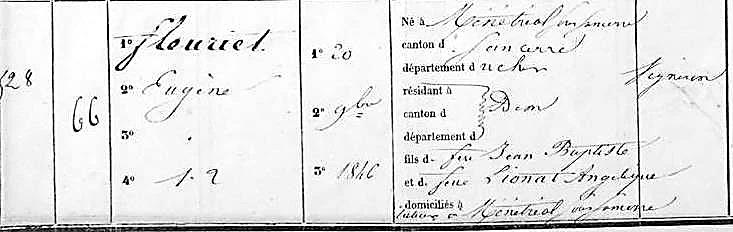 528
66
1º Fleuriet.
2º Eugène
3º
4º 1-2
1º 20
2º 9bre
3º 1846
Né à Ménétréol sous Sancerre
canton d Sancerre
département d u cher
résidant à
canton d Dem
département d
fils d feu Jean Baptiste
et d. feue Lionat Angélique
domiciliés à
Ménétréol sous Sancerre
Vigneron